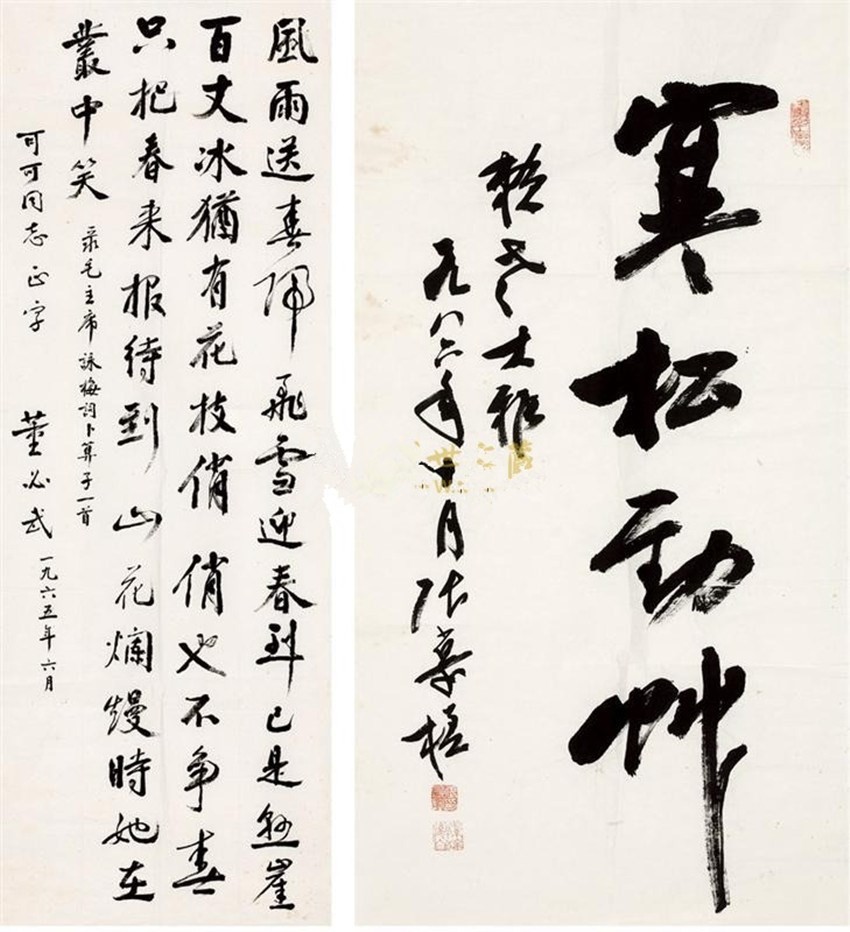 風雨送春归飛雪迎春到已是懸崖
百丈冰猶有花枝俏俏也不争春
只把春来报待到山花爛熳時她在
叢中笑
录毛主席詠梅詞卜算子一首
可可同志正字
董必武 一九六五年六月
寒松劲艸
老大雅
一九八六年十月张慕槎